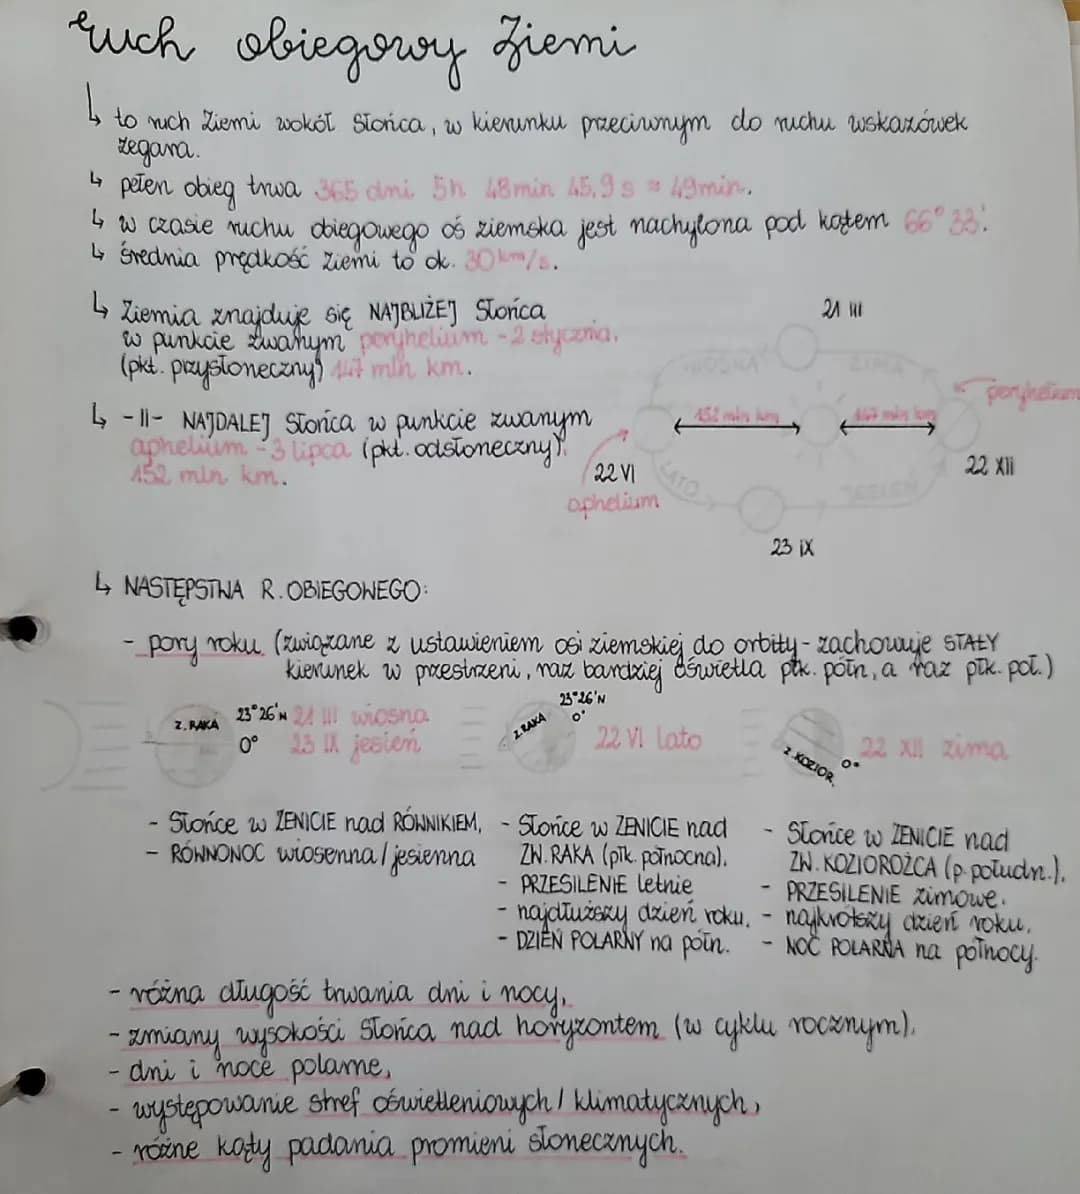 ruch obiegowy Ziemi
↳ to ruch Ziemi wokół Słońca, w kierunku przeciwnym do ruchu wskazówek
zegara.
↳ pełen obieg trwa 365 dni 5h 48min 45,9 s ≈ 49min.
↳ w czasie ruchu obiegowego oś ziemska jest nachylona pod kątem 66°33'.
↳ średnia prędkość Ziemi to ok. 30km/s.
↳ Ziemia znajduje się NAJBLIŻEJ Słońca
w punkcie zwanym peryhelium - 2 stycznia.
(pkt. przysłoneczny) 147 mln km.
↳ -II- NAJDALEJ Słońca w punkcie zwanym
aphelium - 3 lipca (pkt. odsłoneczny).
152 mln km.
21 III
WIOSNA ZIMA
peryhelium
152 mln km 147 mln km
22 VI
22 XII
aphelium
LATO JESIEŃ
23 IX
↳ NASTĘPSTWA R. OBIEGOWEGO:
- pory roku (związane z ustawieniem osi ziemskiej do orbity - zachowuje STAŁY
kierunek w przestrzeni, raz bardziej oświetla płk. półn, a raz płk. poł.)
Z. RAKA 23°26'N 21 III wiosna
0° 23 IX jesień
Z. RAKA 23°26'N
0°
22 VI lato
Z. KOZIOR. 0°
22 XII zima
- Słońce w ZENICIE nad RÓWNIKIEM,
- RÓWNONOC wiosenna / jesienna
- Słońce w ZENICIE nad
ZW. RAKA (płk. północna).
- PRZESILENIE letnie
- najdłuższy dzień roku,
- DZIEŃ POLARNY na półn.
- Słońce w ZENICIE nad
ZW. KOZIOROŻCA (p. połudn.),
- PRZESILENIE zimowe.
- najkrótszy dzień roku,
- NOC POLARNA na północy.
- różna długość trwania dni i nocy,
- zmiany wysokości Słońca nad horyzontem (w cyklu rocznym),
- dni i noce polarne,
- występowanie stref oświetleniowych / klimatycznych,
- różne kąty padania promieni słonecznych.